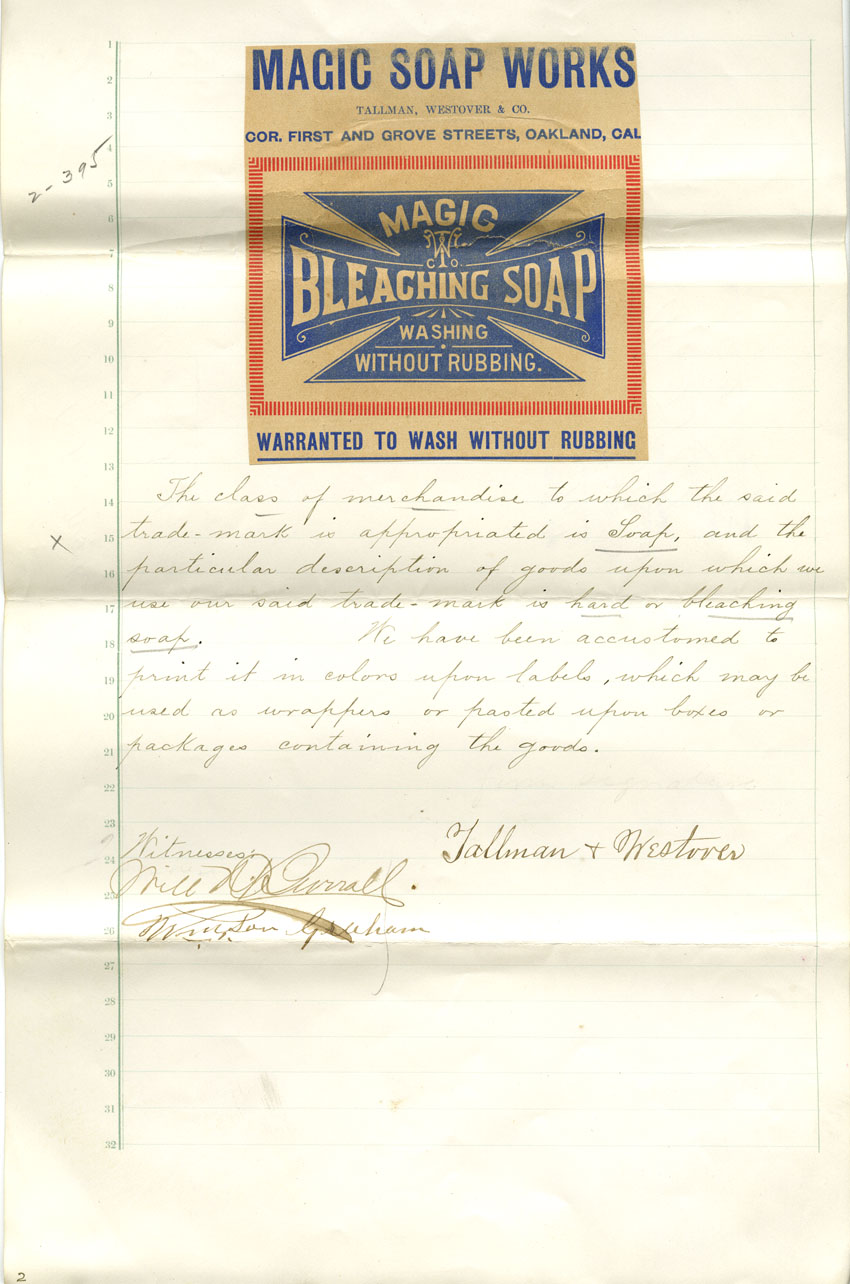 MAGIC SOAP WORKS
TALLMAN, WESTOVER & CO.
COR. FIRST AND GROVE STREETS, OAKLAND, CAL
2-395
MAGIC
TW
CO.
BLEACHING SOAP
WASHING
WITHOUT RUBBING.
WARRANTED TO WASH WITHOUT RUBBING
The class of merchandise to which the said
x
trade-mark is appropriated is Soap, and the
particular description of goods upon which we
use our said trade-mark is hard or bleaching
soap. We have been accustomed to
print it in colors upon labels, which may be
used as wrappers or pasted upon boxes or
packages containing the goods.
Witnesses:
Tallman + Westover
Will
Graham
1
2
3
4
5
6
7
8
9
10
11
12
13
14
15
16
17
18
19
20
21
22
23
24
25
26
27
28
29
30
31
32
2